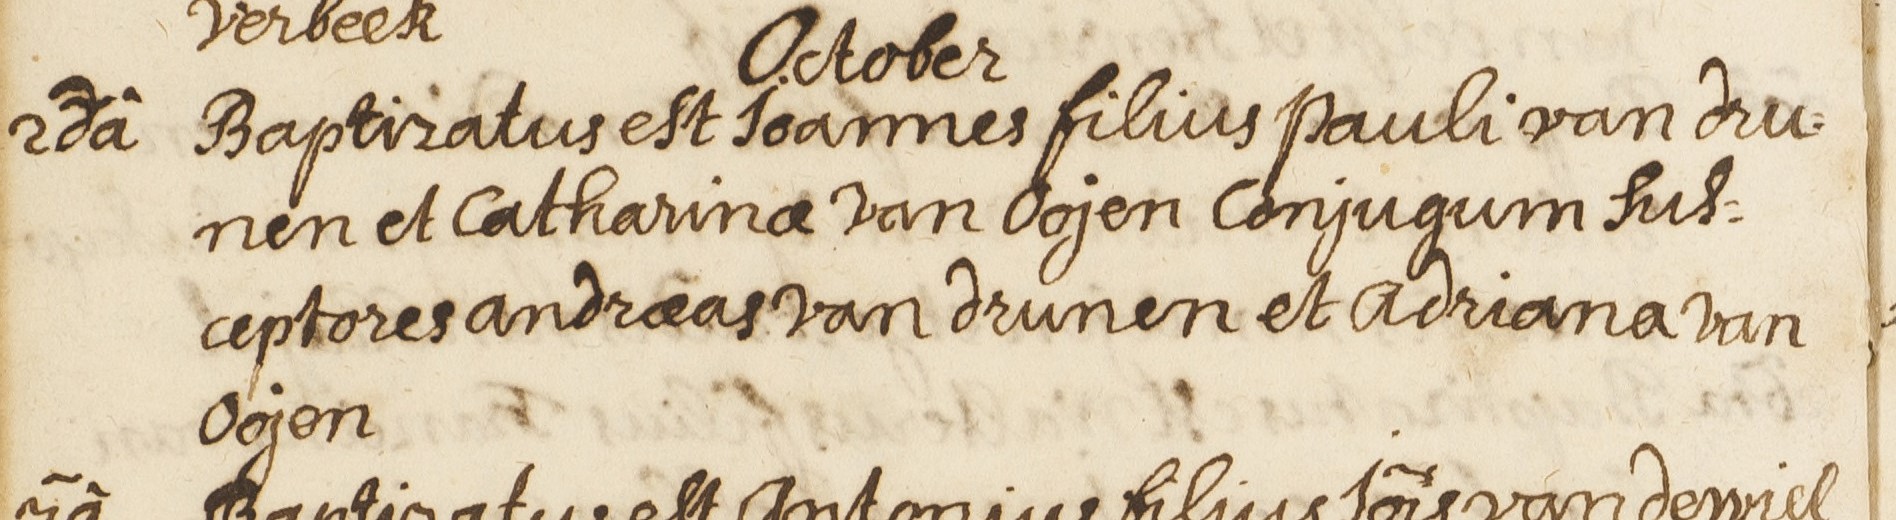 Verbeek
October
2dâ Baptizatus est Ioannes filius Pauli van dru=
nen et Catharinæ Van Oojen Conjugum Sus=
ceptores andræas Van drunen et Adriana Van
Oojen
Baptizatus est Antonius filius Iõis van de wiel